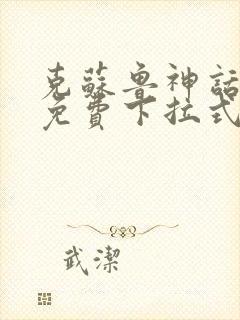 克蘇魯神話
免費下拉式
武潔